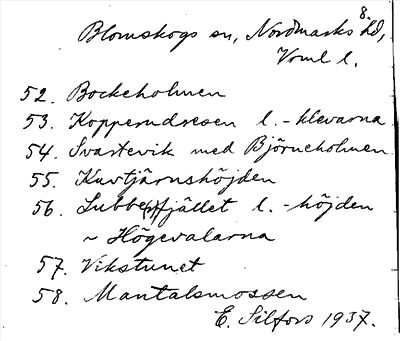 8.
Blomskogs sn, Nordmarks hd,
Vrml l.
52. Bockeholmen
53. Kopperudsesen l. -klevarna
54. Svartevik med Björneholmen
55. Kuvtjärnshöjden
56. fjället l. -höjden
~ Högevalarna
57. Vikstunet
58. Mantalsmossen
E. Silfors 1937.